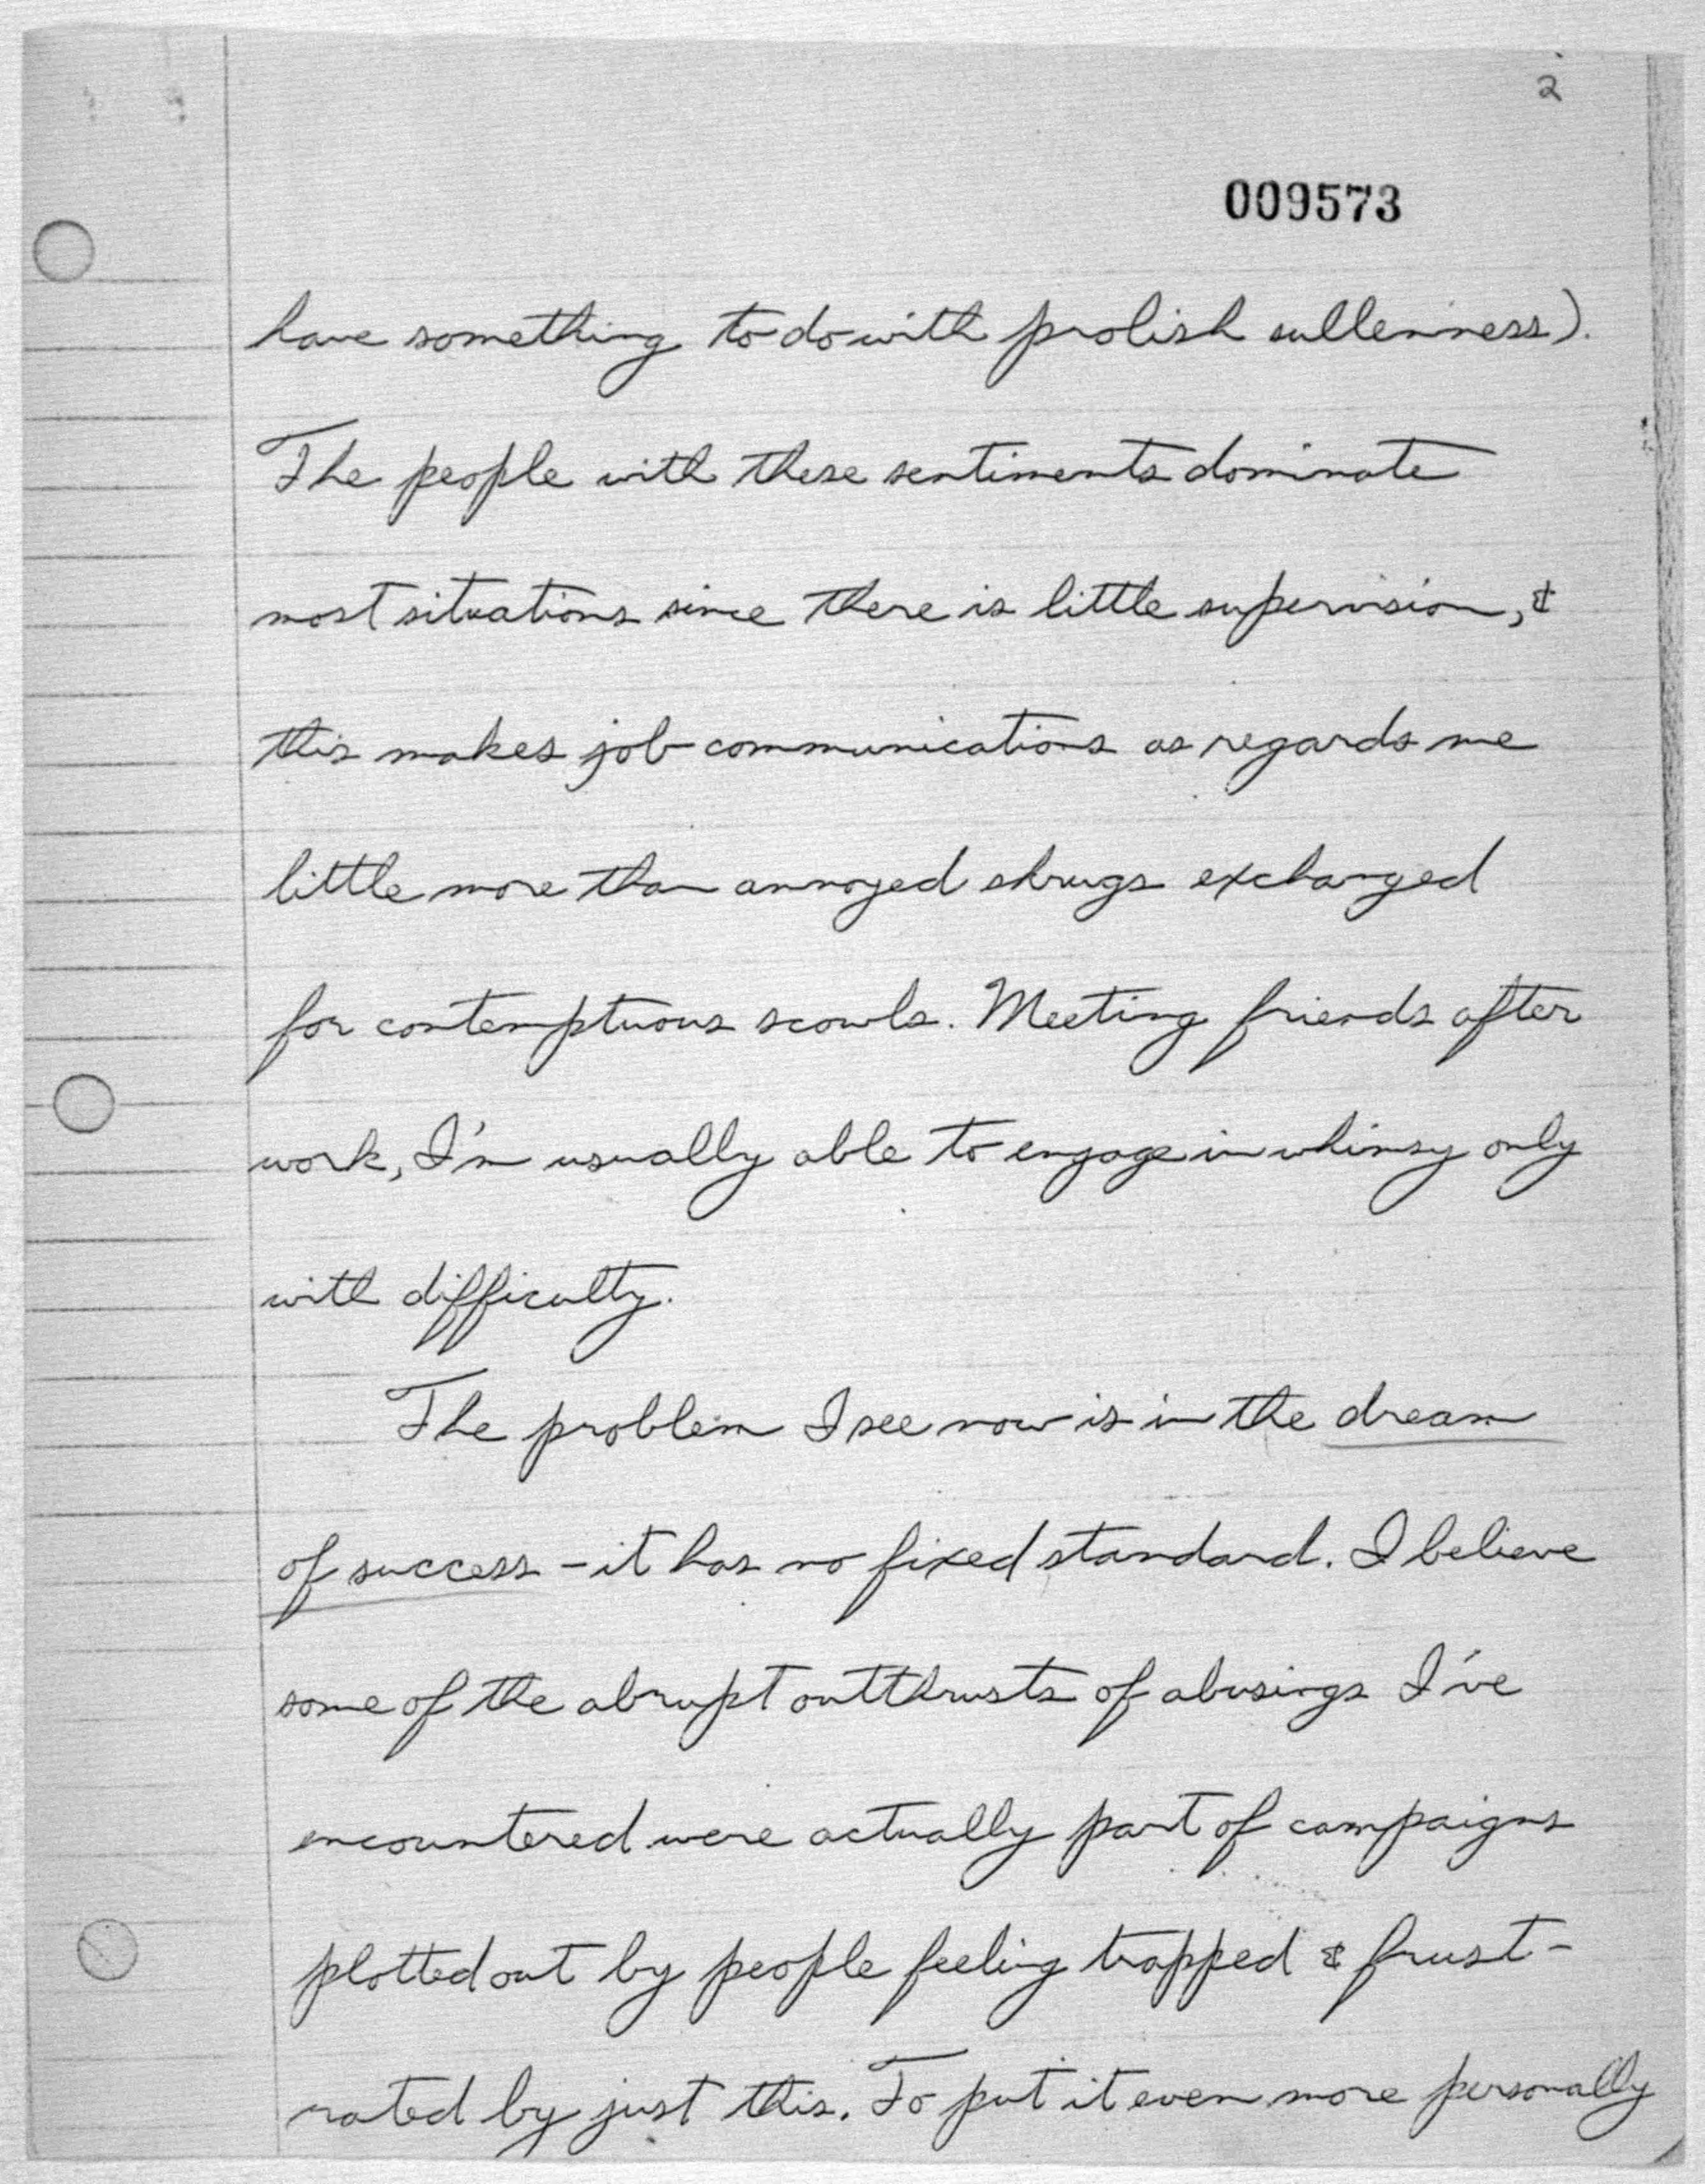 2
009573
have something to do with prolish sullenness).
The people with these sentiments dominate
most situations since there is little supervision, &
this makes job communications as regards me
little more than annoyed shrugs exchanged
for contemptuous scowls. Meeting friends after
work, I'm usually able to engage in whimsy only
with difficulty.
The problem I see now is in the dream
of success - it has no fixed standard. I believe
some of the abrupt outthrusts of abusings I've
encountered were actually part of campaigns
plotted out by people feeling trapped & frust-
rated by just this. To put it even more personally,